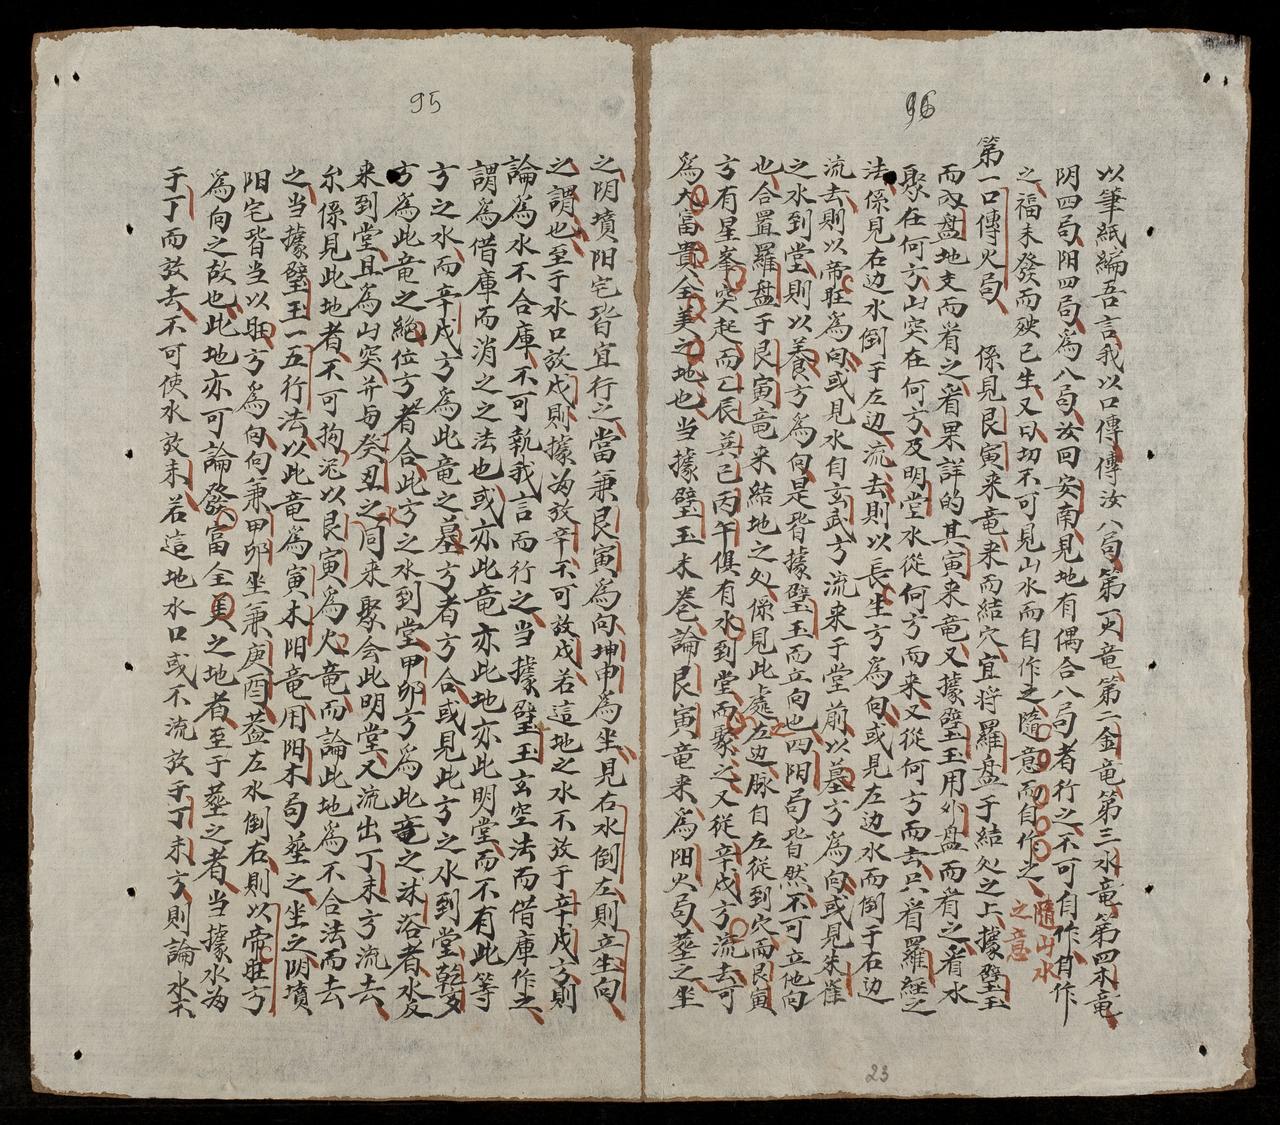 96
以筆紙編吾言我以口傳傳汝八局第一火竜第二金竜第三水竜第四木竜
阴四局阳四局爲八局汝回安南見地有偶合八局者行之不可自作自作
之福未發而殃已生又曰切不可見山水而自作之隨意而自作之
隨山水
之意
第一口傳火局 係見艮寅来竜来而結穴宜将羅盘于結处之上據璧玉
而内盘地支而看之看果詳的其寅来竜又據璧玉用外盘而看之看水
聚在何方山突在何方及明堂水從何方而来又從何方而去只看羅経之
法係見右边水倒于左边流去則以長生方爲向或見左边水而倒于右边
流去則以帝旺爲向或見水自玄武方流来于堂前以墓方爲向或見朱雀
之水到堂則以養方爲向是皆據璧玉而立向也四阳局皆自然不可立他向
也合置羅盘于艮寅竜来結地之处係見此處左边脉自左從到穴而艮寅
方有星峯突起而乙辰巽巳丙午俱有水到堂而聚之又從辛戌方流去可
爲大富貴全美之地也当據璧玉末卷論艮寅竜来爲阳火局塟之坐
95
之阴墳阳宅皆宜行之當兼艮寅爲向坤申爲坐見右水倒左則立生向
之謂也至于水口放戌則據为放辛不可放戌若這地之水不放于辛戌方則
論爲水不合庫不可執我言而行之当據璧玉玄空法而借庫作之
謂爲借庫而消之之法也或亦此竜亦此地亦此明堂而不有此等
方之水而辛戌方爲此竜之墓方者方合或見此方之水到堂乾亥
方爲此竜之絶位方者合此方之水到堂甲卯方爲此竜之沐浴者水反
来到堂且爲山突并与癸丑之同来聚会此明堂又流出丁未方流去
尔係見此地者不可拘泥以艮寅爲火竜而論此地爲不合法而去
之当據璧玉一五行法以此竜爲寅木阳竜用阳木局塟之坐之阴墳
阳宅皆当以旺方爲向向兼甲卯坐兼庚酉葢左水倒右則以帝旺方
爲向之故也此地亦可論發富全美之地者至于塟之者当據水为
于丁而放去不可使水放未若這地水口或不流放于丁未方則論水不
23